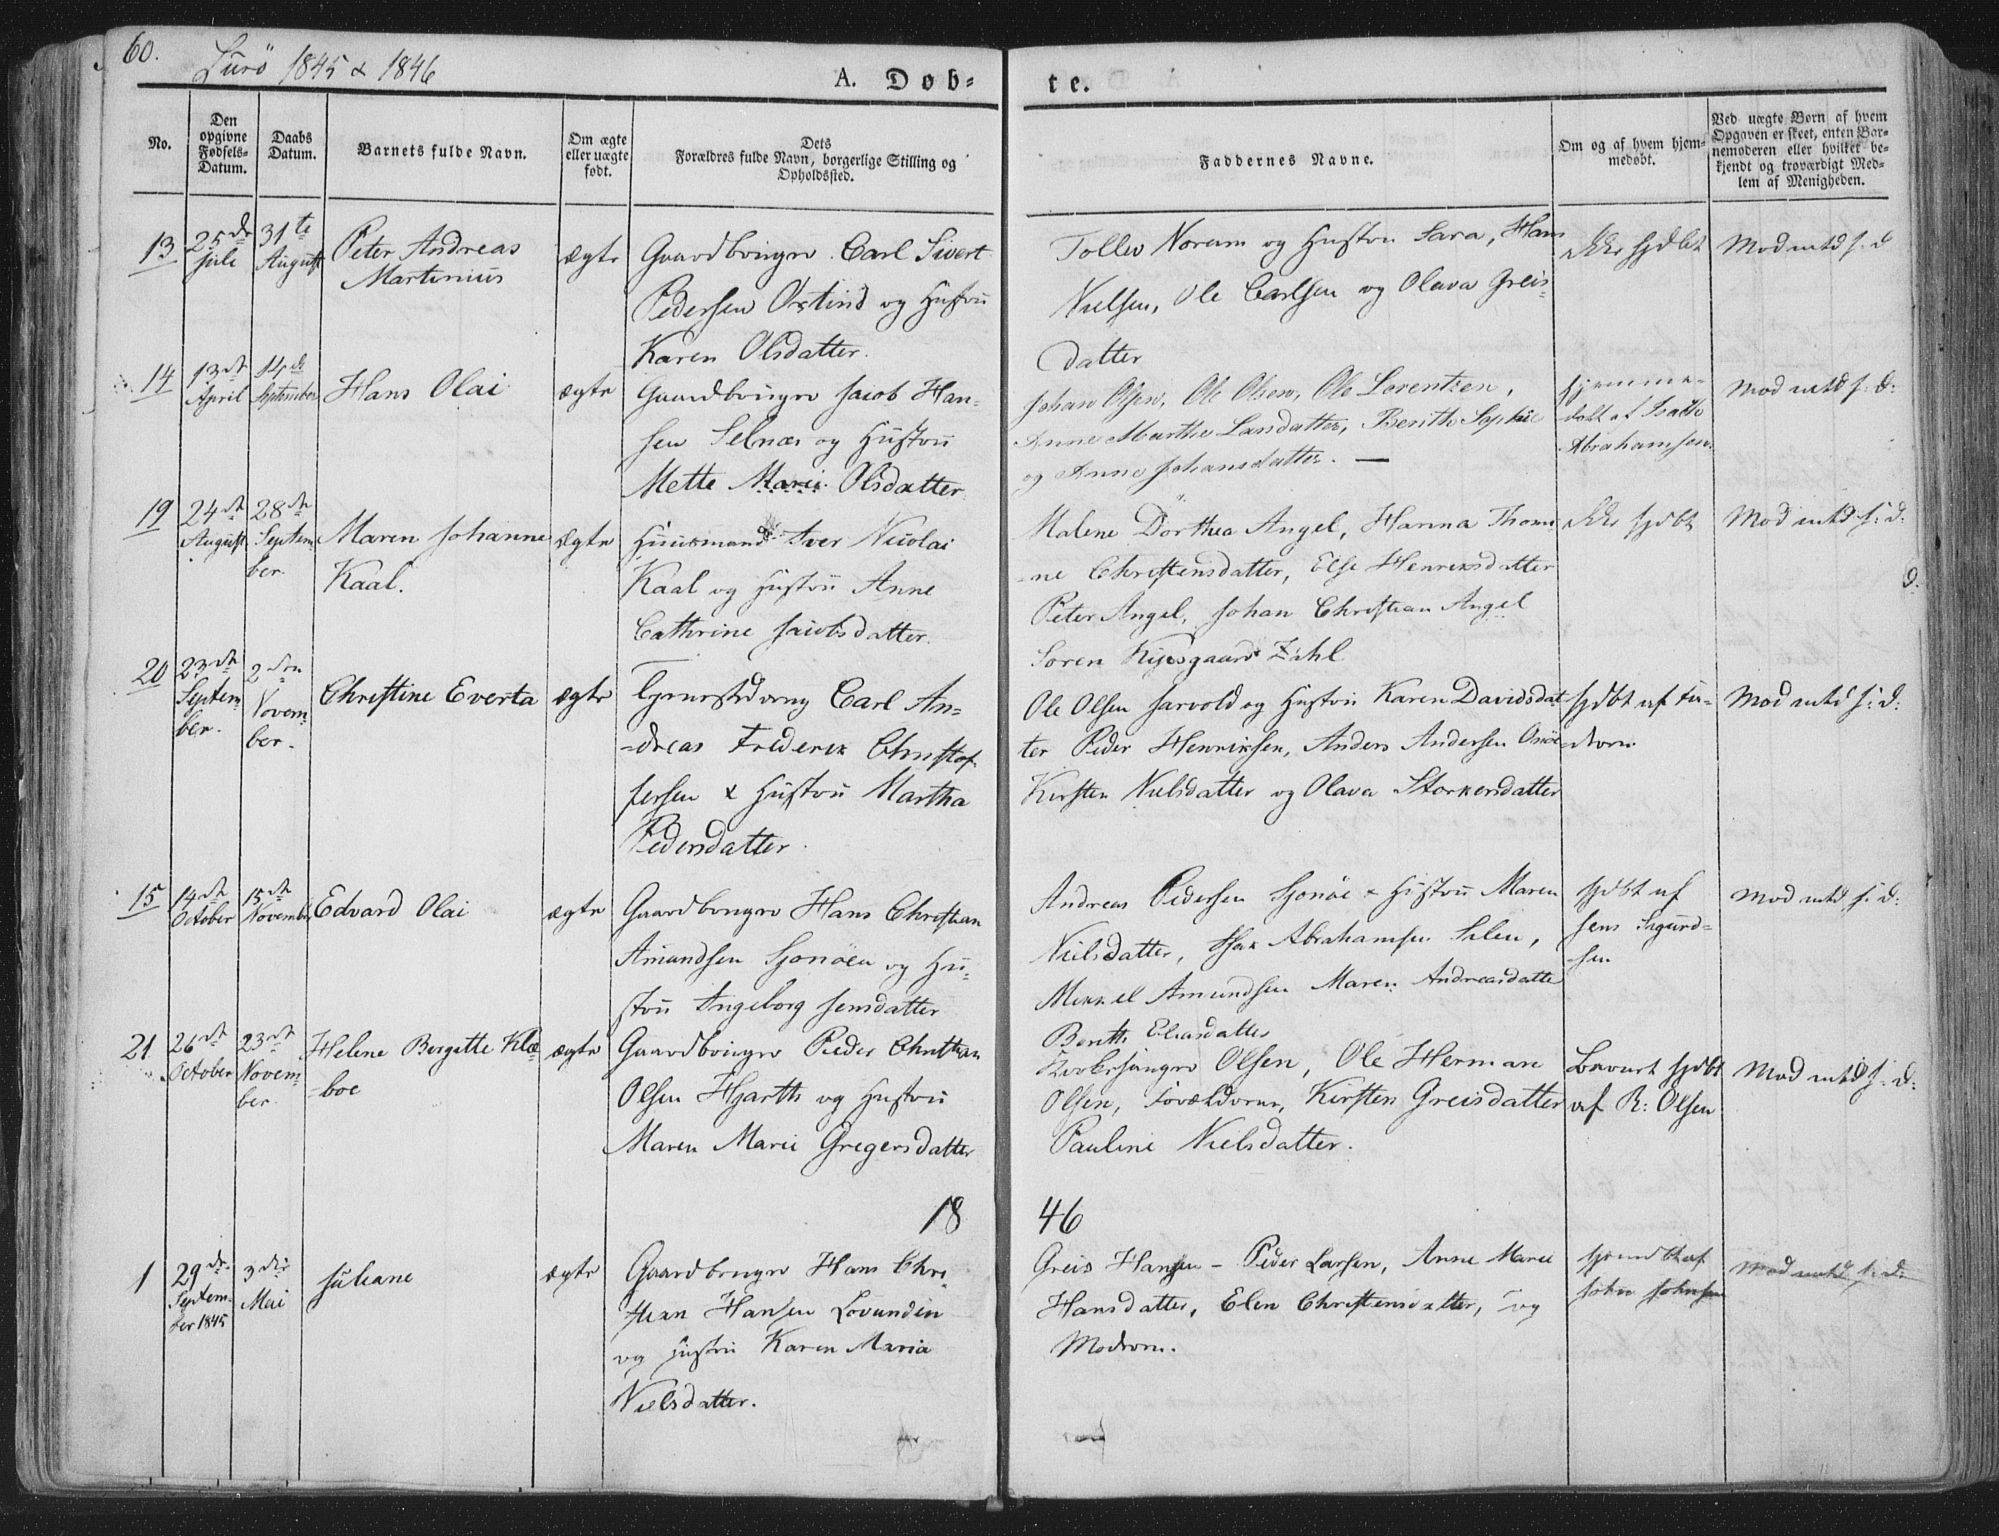 60.
Lurö 1845 & 1846
A. Døb-
te.
No.
Den opgivne Fødsels-Datum.
Daabs Datum.
Barnets fulde Navn.
Om ægte eller uægte født.
Dets Forældres fulde Navn, borgerlige Stilling og Opholdssted.
Faddernes Navne.
Om og af hvem hjemmedøbt.
Ved uægte Børn af hvem Opgaven er skeet, enten Barnemoderen eller hvilket bekjendt og troværdigt Medlem af Menigheden.
13
25de Juli
31te August
Peter Andreas
Martinius
ægte
Gaardbruger Carl Sivert
Pedersen Oxtind og Hustru
Karen Olsdatter.
Tollev Norum og Hustru Sara, Hans
Nielsen, Ole Carlsen og Olava Greis-
datter
Ikke hjdbt
Mod attd f. d
14
13de April
14de September
Hans Olai
ægte
Gaardbruger Jacob Han-
sen Selnæs og Hustru
Mette Marie Olsdatter
Johan Olsen, Ole Olsen, Ole Lorentzen,
Anne Marthe Larsdatter, Berith Sophie
og Anne Johansdatter. —
hjemme-
døbt af Isach
Abrahamsen
19
24de August
28de Septem-
ber.
Maren Johanne
Kaal.
ægte
Huusmand Iver Nicolai
Kaal og Hustru Anne
Cathrine Jacobsdatter.
Malene Dorthea Angel, Hanna Thom-
ne Christensdatter, Else Henriksdatter
Peter Angel, Johan Christian Angel
Søren Zahl
Ikke hjdbt
20
23de Septem-
ber.
2den Novem-
ber.
Christine Everta
ægte
Carl An-
dreas Frederik Christof-
fersen & Hustru Martha
Pedersdatter.
Ole Olsen Sarvold og Hustru Karen Davidsdat-
ter Peder Henriksen, Anders Andersen Onøe
Kirsten Nielsdatter og Olava Storkersdatter
hjdbt af Fa-
deren
15
14de October
15de November
Edvard Olai
ægte
Gaardbruger Hans Christian
Amundsen Sjonøen og Hu-
stru Ingeborg Jensdatter
Andreas Pedersen Sjonøe & Hustru Maren
Nielsdatter, Isak Abrahamsen Selen,
Mikkel Amundsen Maren Andreasdatter
Berith Eliasdatter
hjdbt af
Jens Sigurd-
sen
21
26de October
23de Novem-
ber.
Helene Bergitte Klæ-
boe
ægte
Gaardbruger Peder Christian
Olsen Hjarth og Hustru
Maren Marie Gregersdatter
Kirkesanger Olsen, Ole Herman
Olsen, Forældrene, Kirsten Greisdatter
Pauline Nielsdatter.
hjdbt
af R: Olsen
18
46
1
29de Septem-
ber 1845
3die Mai
Juliane
ægte
Gaardbruger Hans Chri-
stian Hansen Lovunden
og Hustru Karen Maria
Nielsdatter.
Greis Hansen – Peder Larsen, Anne Marie
Hansdatter, Elen Christensdatter, og
Moderen.
hjemdbt af
John Johnsen